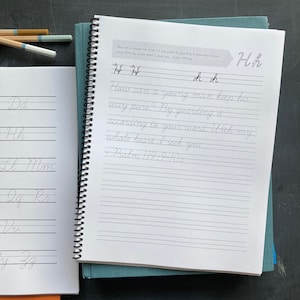 Hh
H H h h
How can a young man keep his
way pure? By guarding it
according to your word. With my
whole heart I seek you.
Psalm 119:9-10
Dd
Hh
Ll Mm
Qq Rr
Vv
Zz